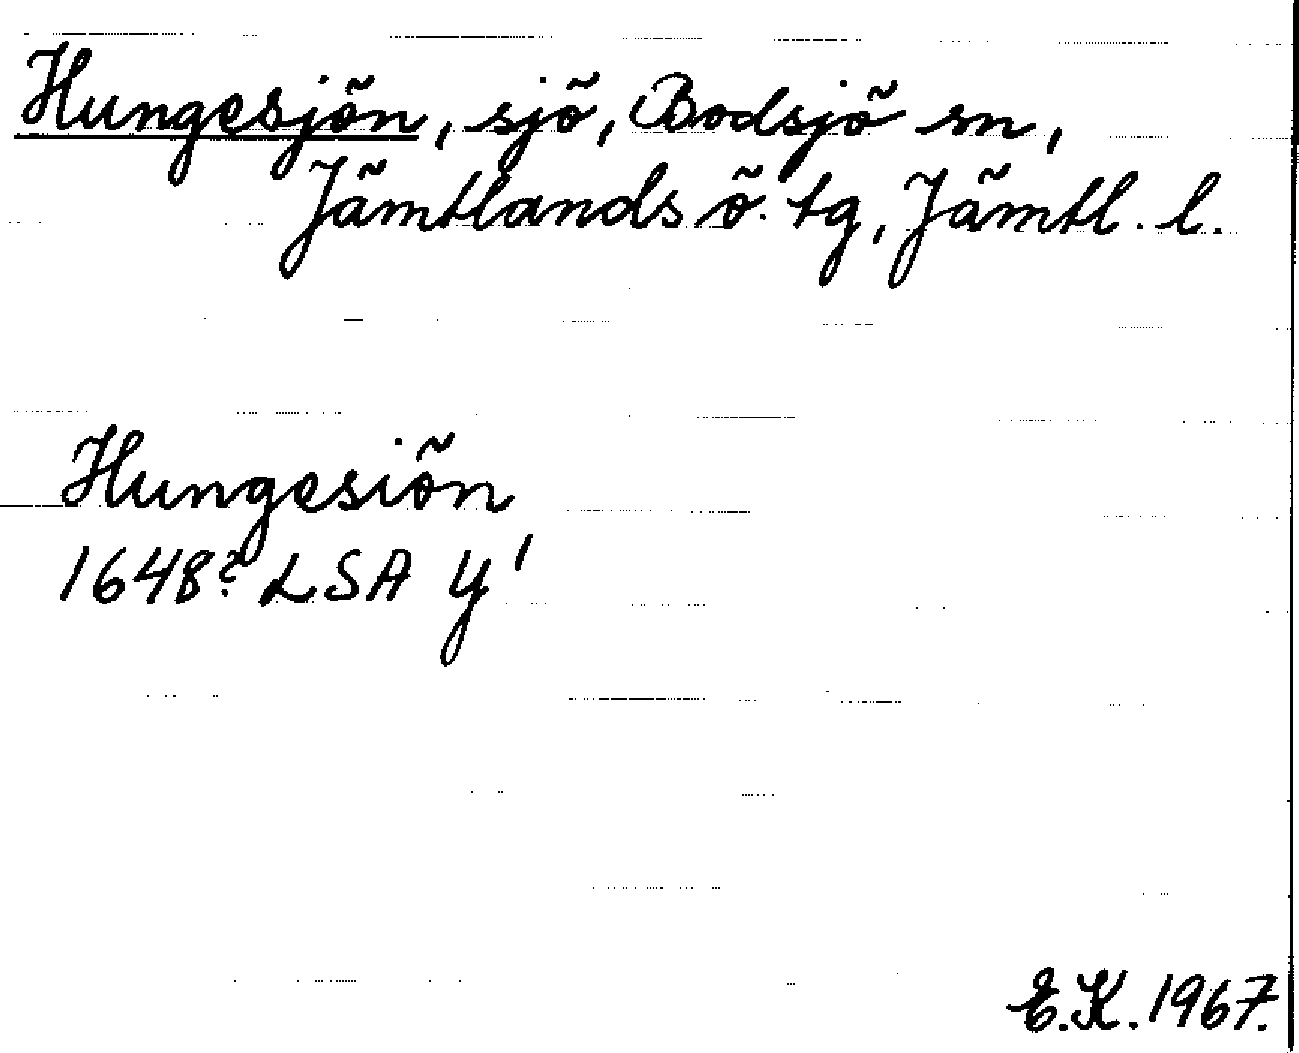 Hungesjön, sjö, Bodsjö sn,
Jämtlands ö. tg, Jämtl. l.
Hungesiön
1648? LSA Y'
E.K. 1967.